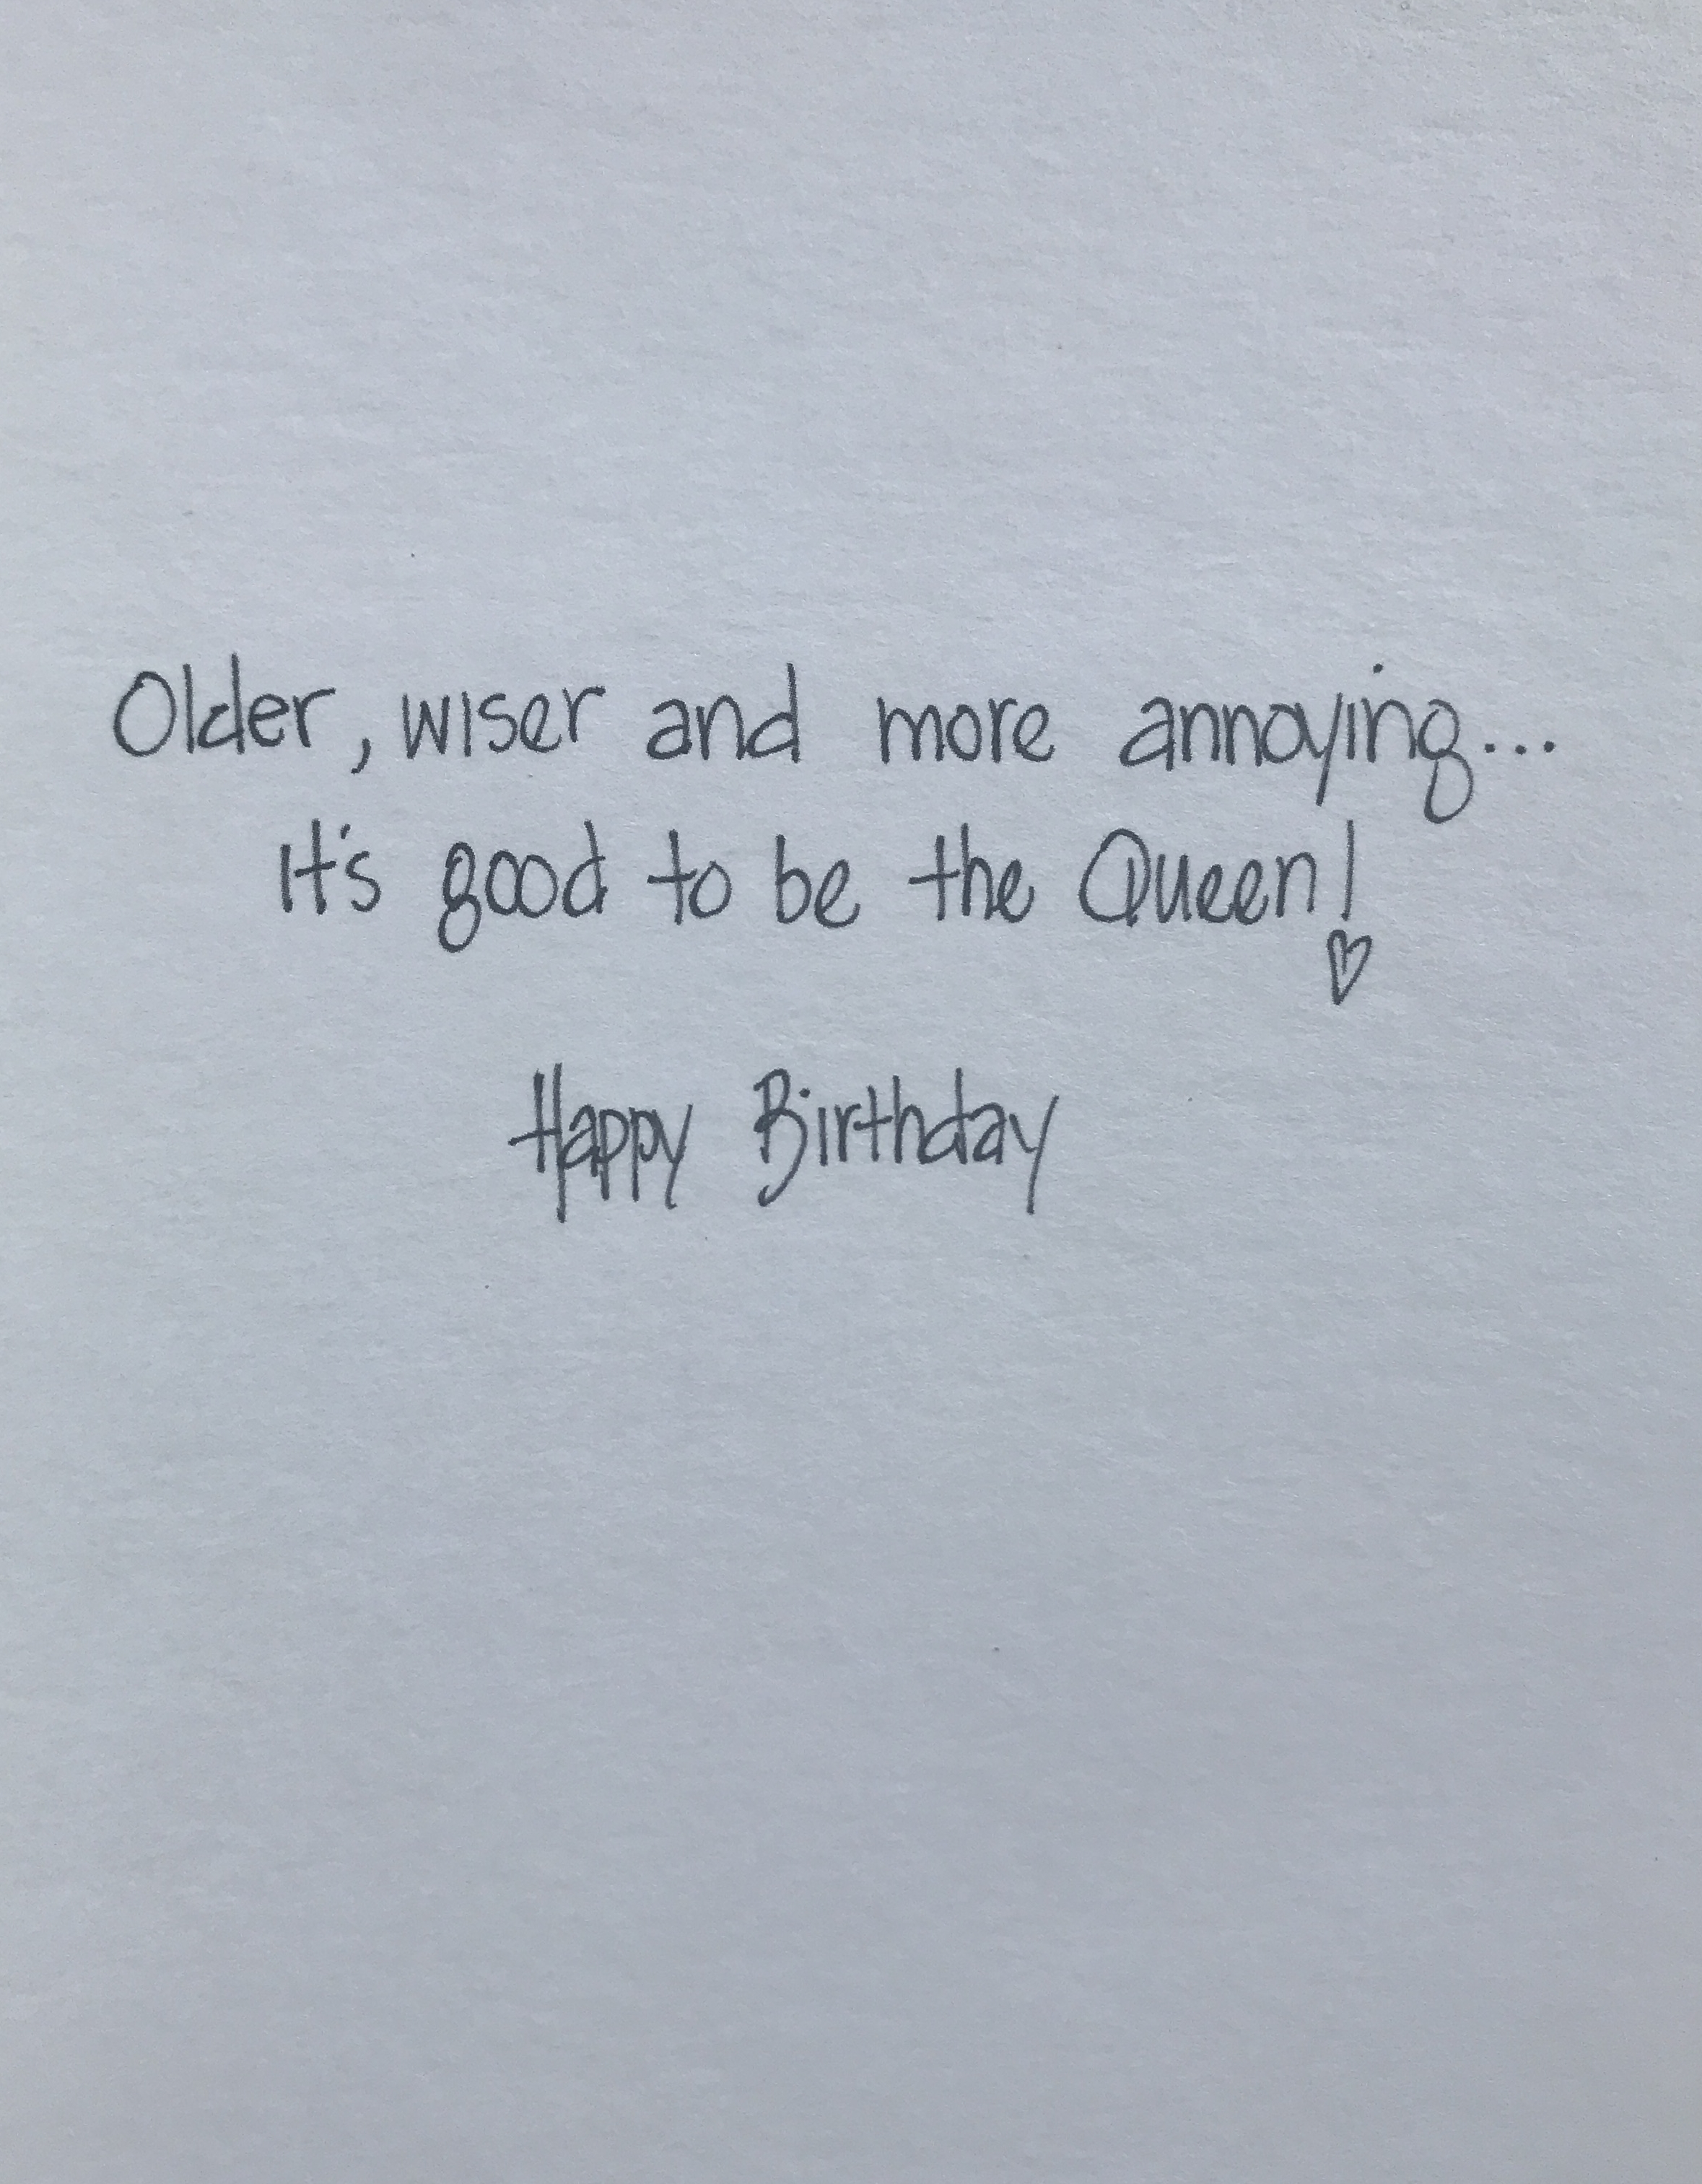 Older, wiser and more annoying...
It's good to be the Queen!
Happy Birthday